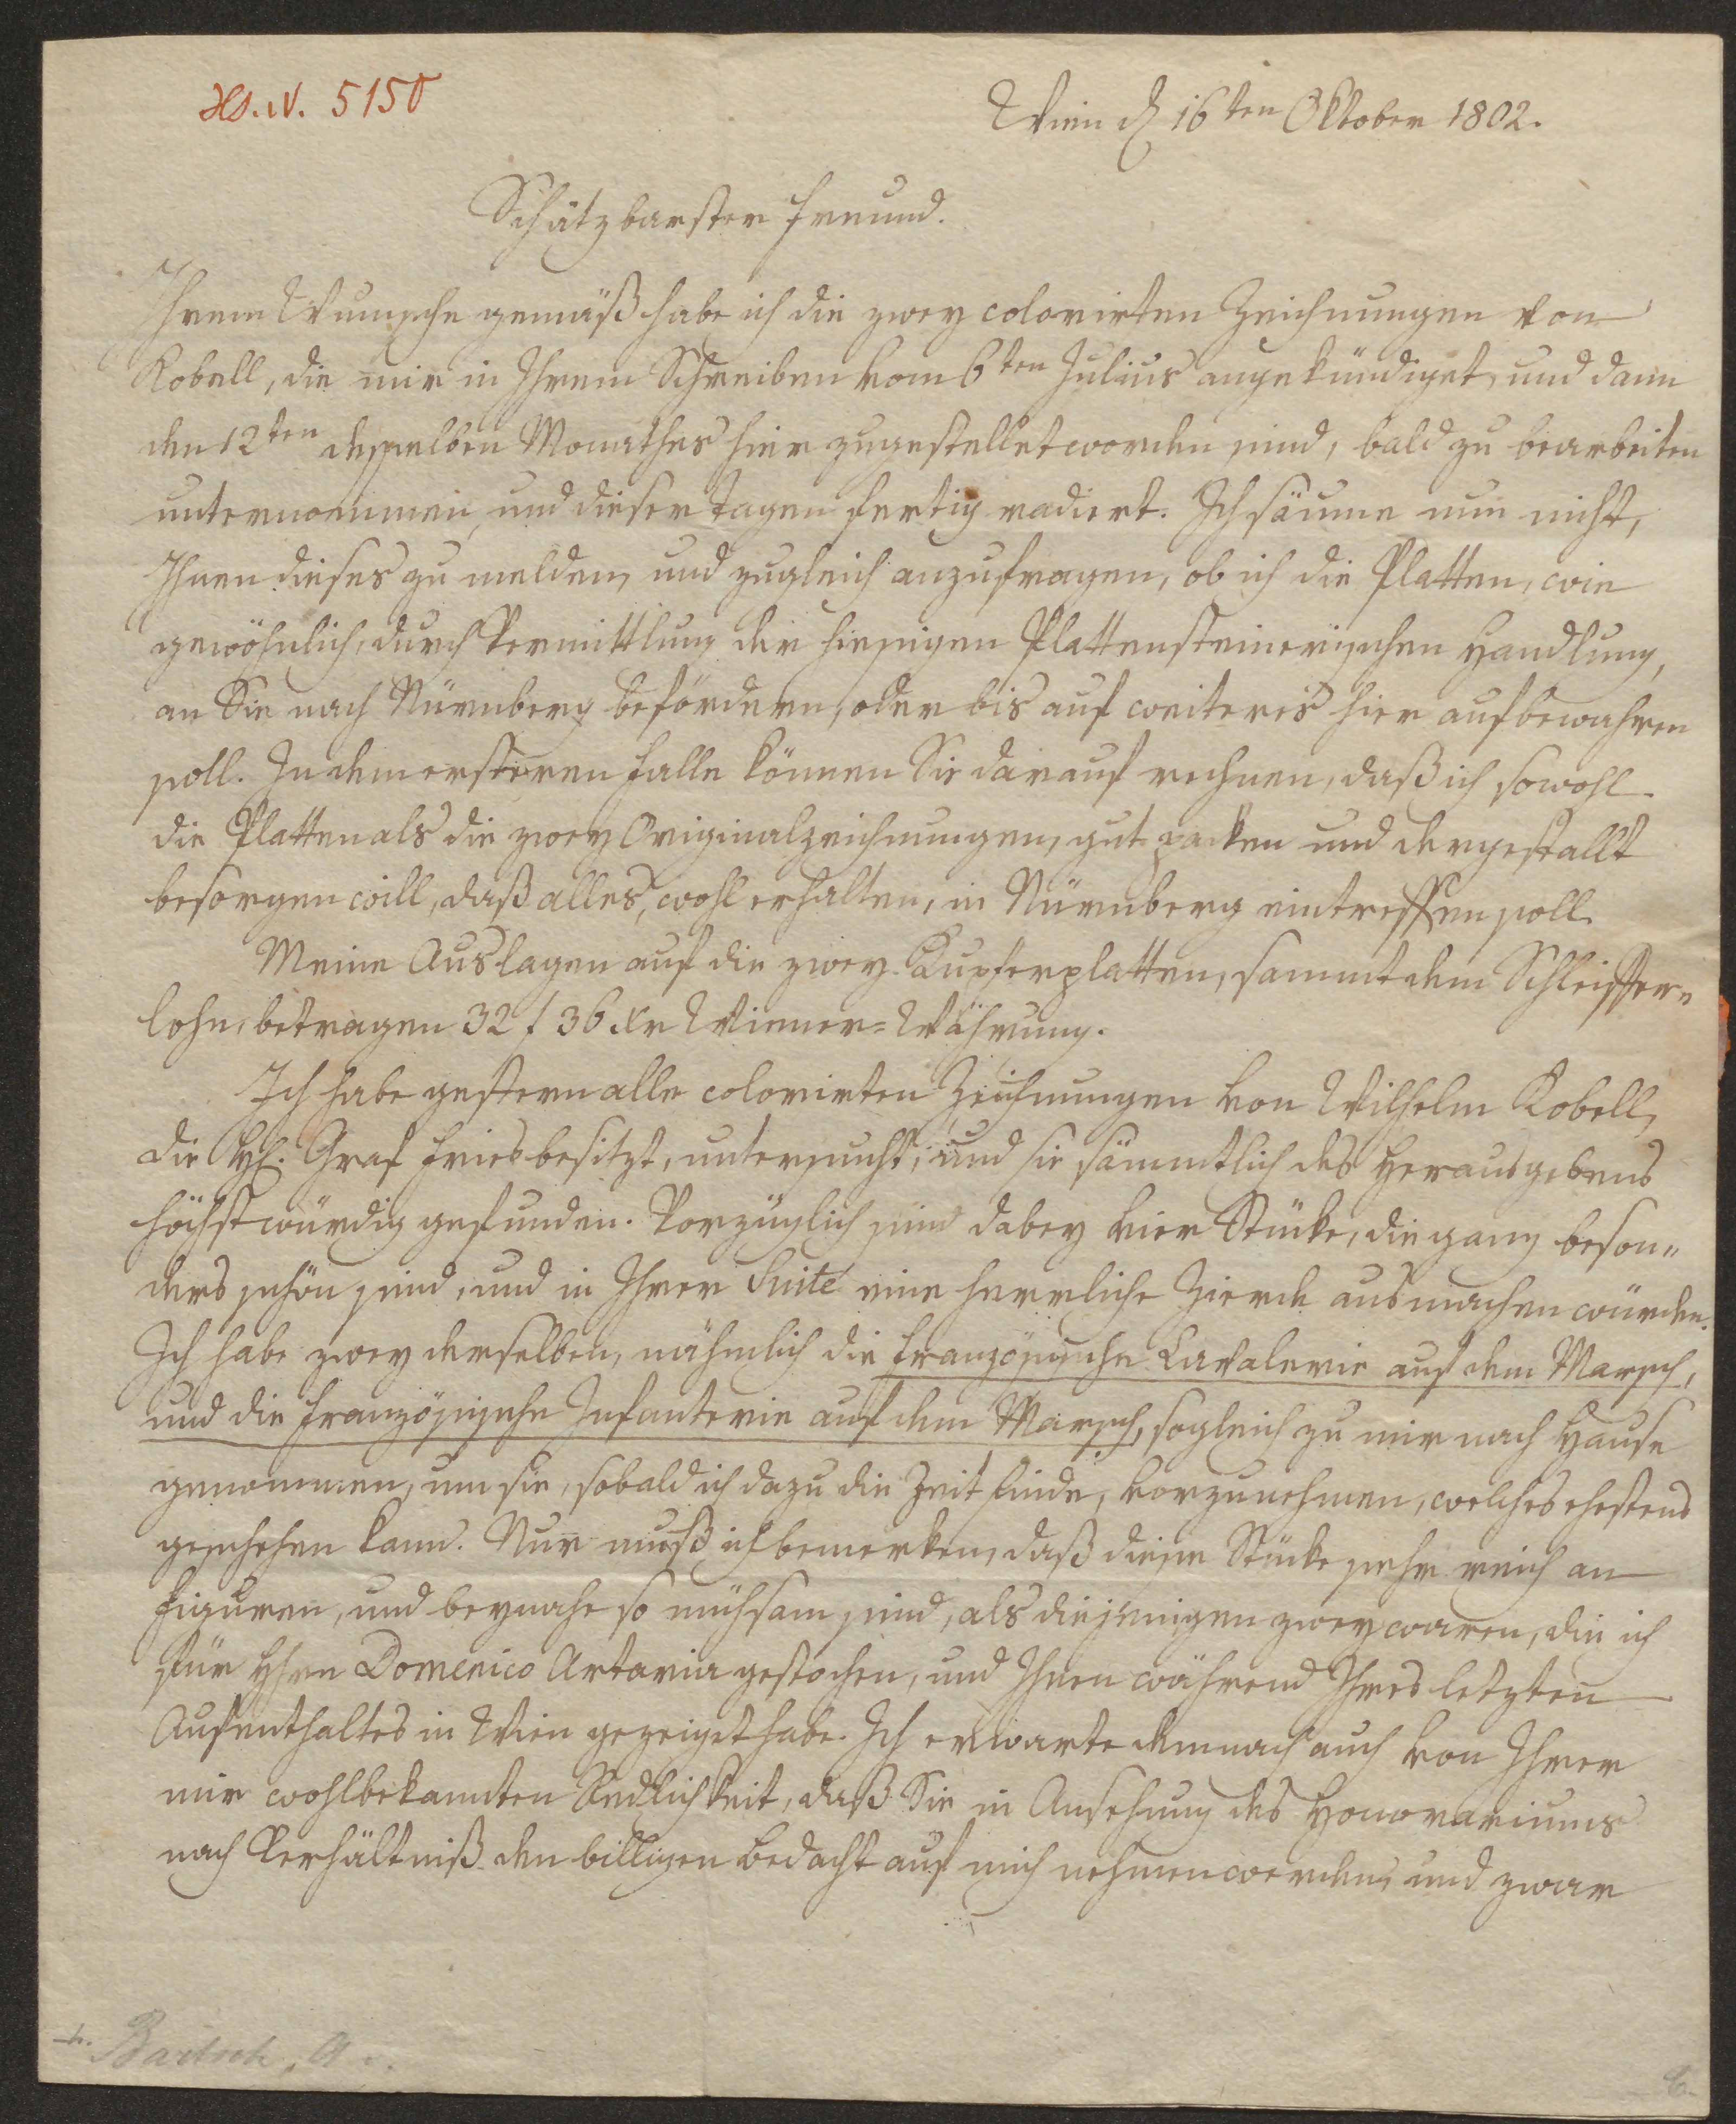 Hs. N. 5150
Wien d 16ten Oktober 1802.
Schätzbarster Freund.
Ihrem Wunsche gemäß habe ich die zwey colorirten Zeichnungen von
Kobell, die mir in Ihrem Schreiben vom 6ten Julius angekündiget, und dann
den 12ten desselben Monathes hier zugestellet worden sind, bald zu bearbeiten
unternommen, und dieser Tagen fertig radiert. Ich säume nun nicht,
Ihnen dieses zu melden, und zugleich anzufragen, ob ich die Platten, wie
gewöhnlich, durch Vermittlung der hiesigen Plattensteinerischen Handlung,
an Sie nach Nürnberg befördern, oder bis auf weiteres hier aufbewahren
soll. In dem ersteren Falle können Sie darauf rechnen, daß ich sowohl
die Platten als die zwey Originalzeichnungen, gut packen und dergestallt
besorgen will, daß alles, wohl erhalten, in Nürnberg eintreffen soll.
Meine Auslagen auf die zwey Kupferplatten, sammt dem Schleiffer=
lohn, betragen 32 f 36 xr Wiener=Währung.
Ich habe gestern alle colorirten Zeichnungen von Wilhelm Kobell,
die H. Graf Fries besitzt, untersucht, und sie sämmtlich des Herausgebens
höchst würdig gefunden. Vorzüglich sind dabey vier Stücke, die ganz beson=
ders schön sind, und in Ihrer Suite eine herrliche Zierde ausmachen würden.
Ich habe zwey derselben, nähmlich die französische Cavalerie auf dem Marsch,
und die französische Infanterie auf dem Marsch, sogleich zu mir nach Hause
genommen, um sie, sobald ich dazu die Zeit finde, vorzunehmen, welches ehestens
geschehen kann. Nur muß ich bemerken, daß diese Stücke sehr reich an
Figuren, und beynahe so mühsam sind, als diejenigen zwey waren, die ich
für Hrn Domenico Artaria gestochen, und Ihnen während Ihres letzten
Aufenthaltes in Wien gezeiget habe. Ich erwarte demnach auch von Ihrer
mir wohlbekannten Redlichkeit, daß Sie in Ansehung des Honorariums
nach Verhältniß den billigen Bedacht auf mich nehmen werden, und zwar
Bartsch, A.